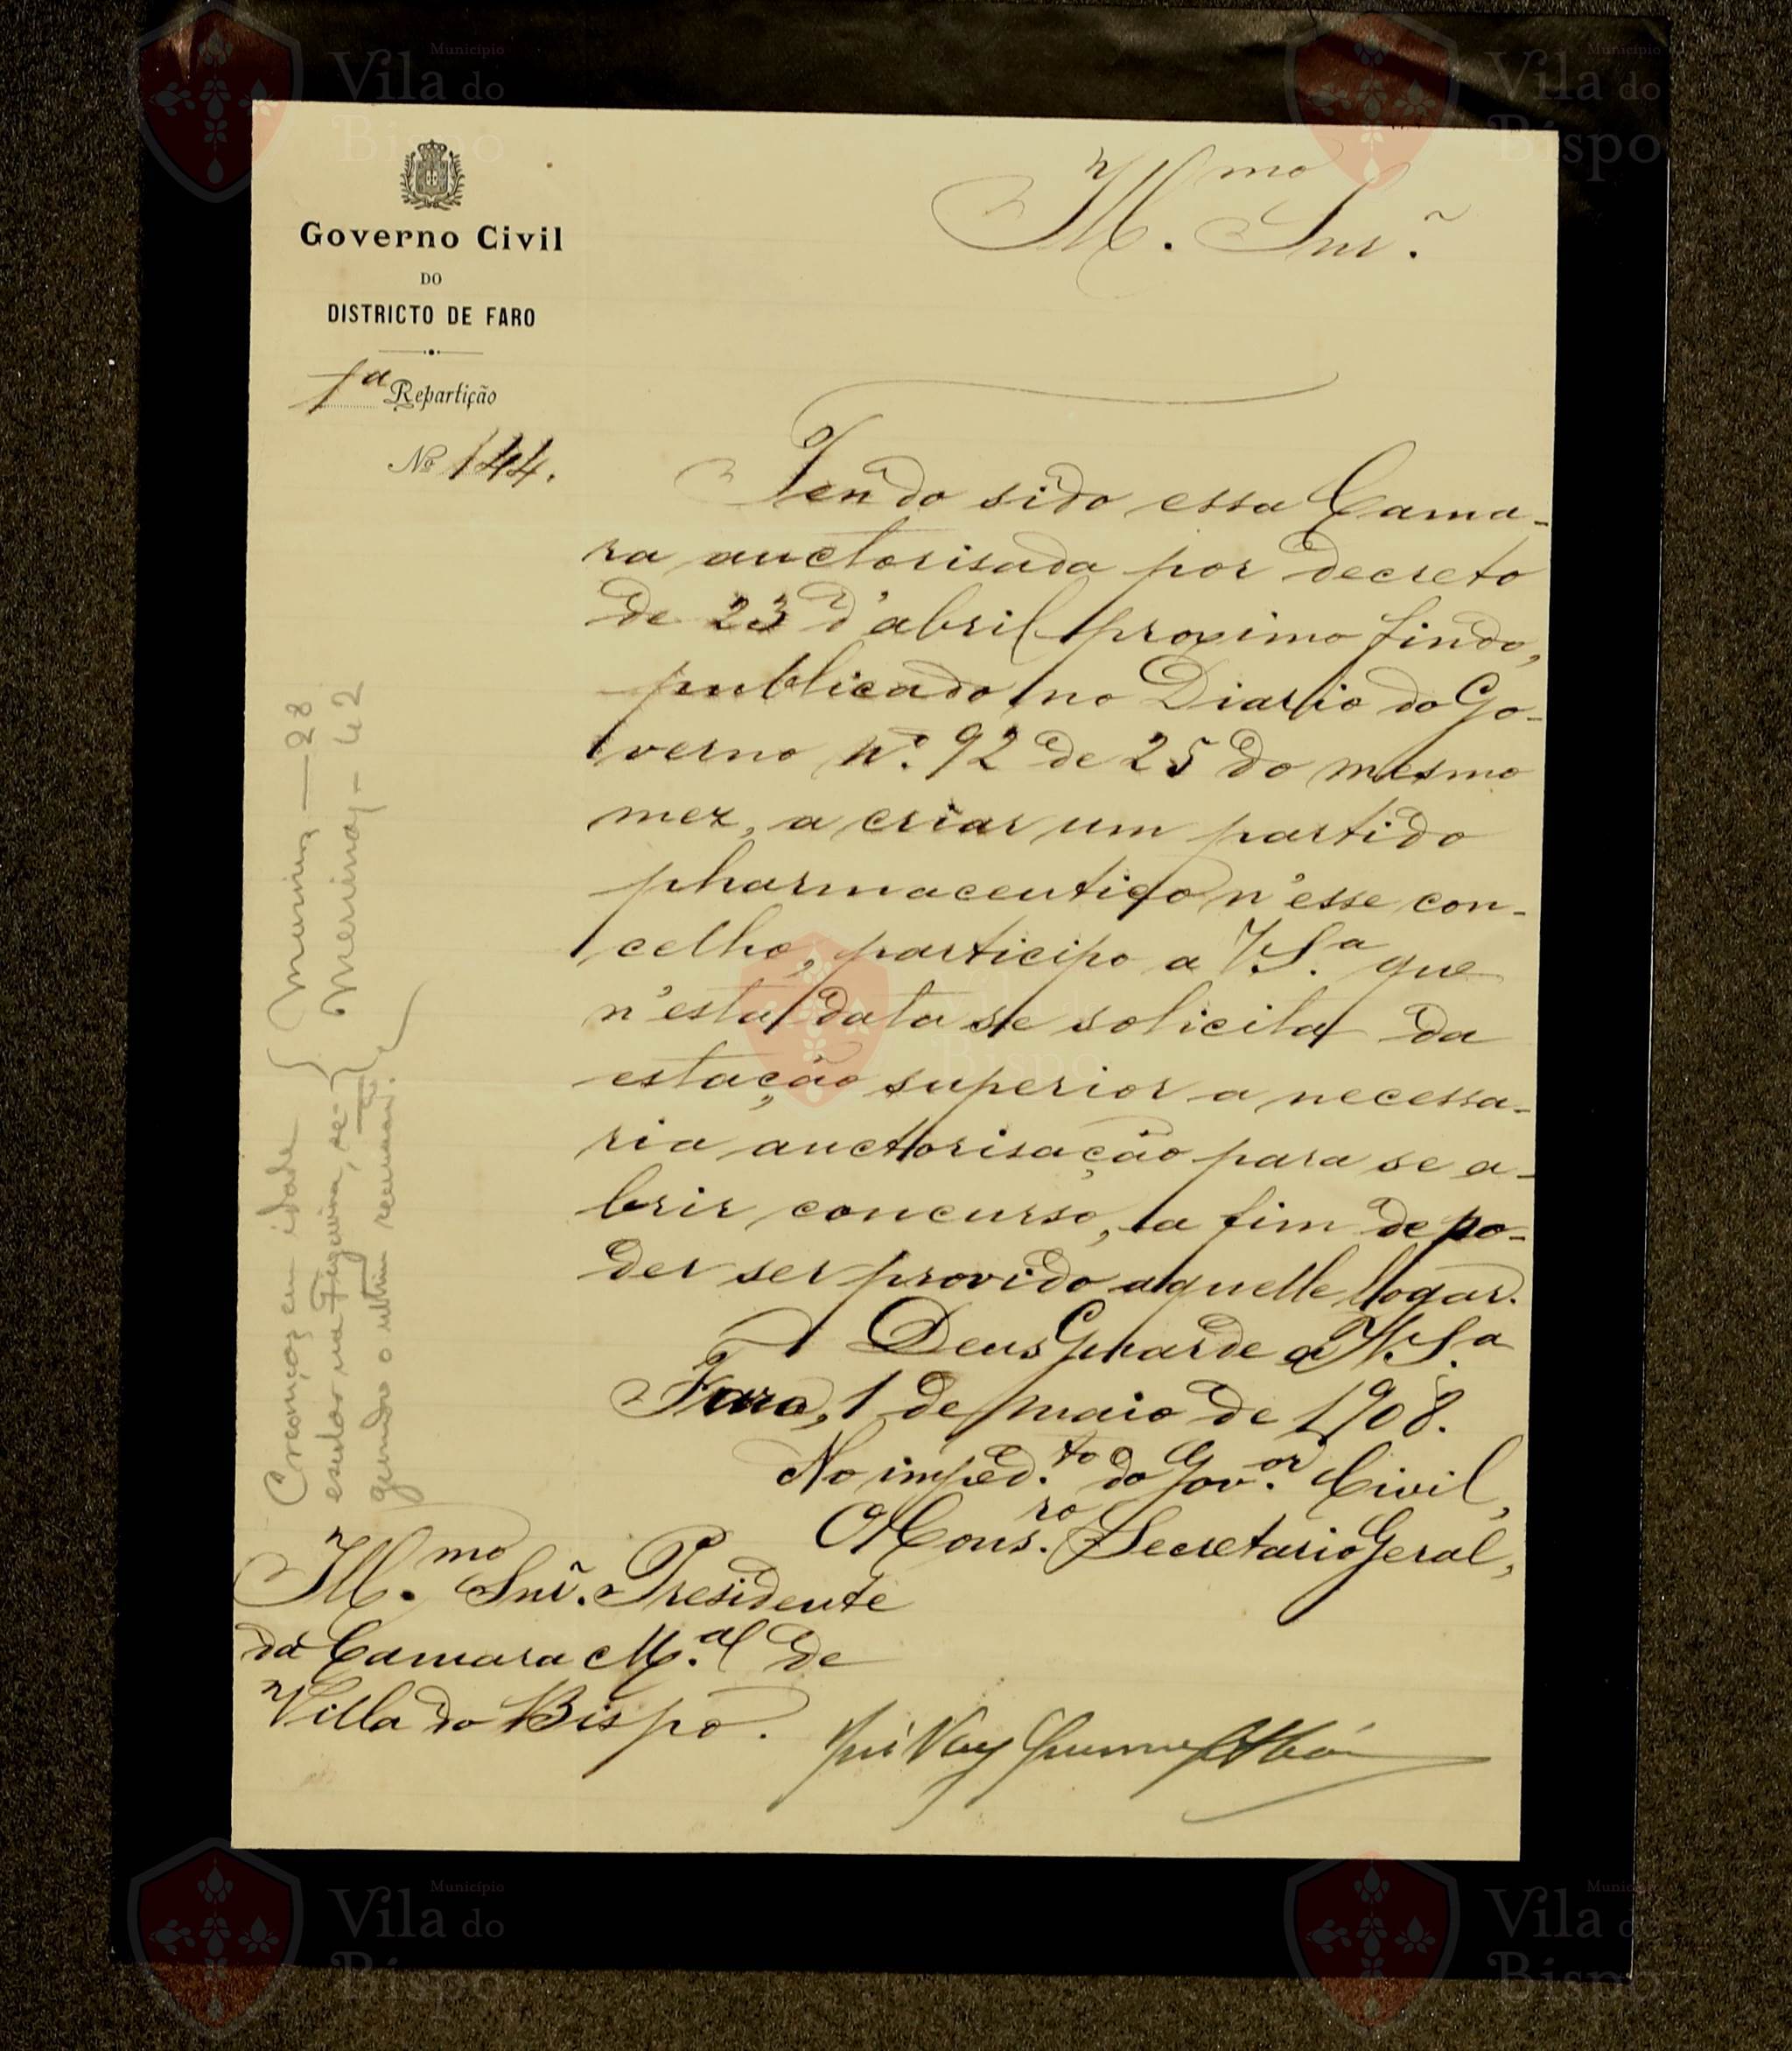 Governo Civil
DO
DISTRICTO DE FARO
1ª Repartição
Nº 144.
Ill.mo Snr.
Tendo sido essa Cama-
ra auctorisada por decreto
de 23 d'abril proximo findo,
publicado no Diario do Go-
verno nº. 92 de 25 do mesmo
mez, a criar um partido
pharmaceutico n'esse con-
celho, participo a V.S.ª que
n'esta data se solicita da
estação superior a necessa-
ria auctorisação para se a-
brir concurso, a fim de po-
der ser provido aquelle logar.
Deus Guarde a V.S.ª
Faro, 1 de maio de 1908.
No imped.to do Gov.or Civil,
O Cons.ro Secretario Geral,
Ill.mo Snr. Presidente
da Camara M.al de
Villa do Bispo.
Creanças em idade
escolar na Figueira, se-
gundo o ultimo recensam.
Meninos — 28
Meninas — 42
Município
Vila do
Bispo
Município
Vila do
Bispo
Município
Vila do
Bispo
Vila do
Bispo